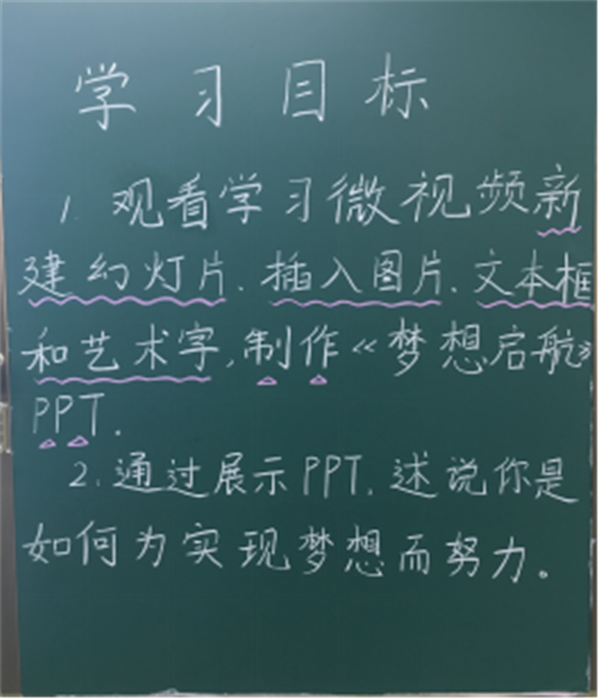 学习目标
1. 观看学习微视频新
建幻灯片、插入图片、文本框
和艺术字,制作《梦想启航》
PPT.
2. 通过展示PPT, 述说你是
如何为实现梦想而努力。